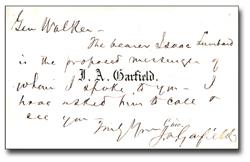 Gen Walker -
The bearer Isaac Lumbard
is the proposed messenger of
whom I spoke to you - I
J. A. Garfield.
have asked him to call &
see you
Truly Yours
J. A. Garfield